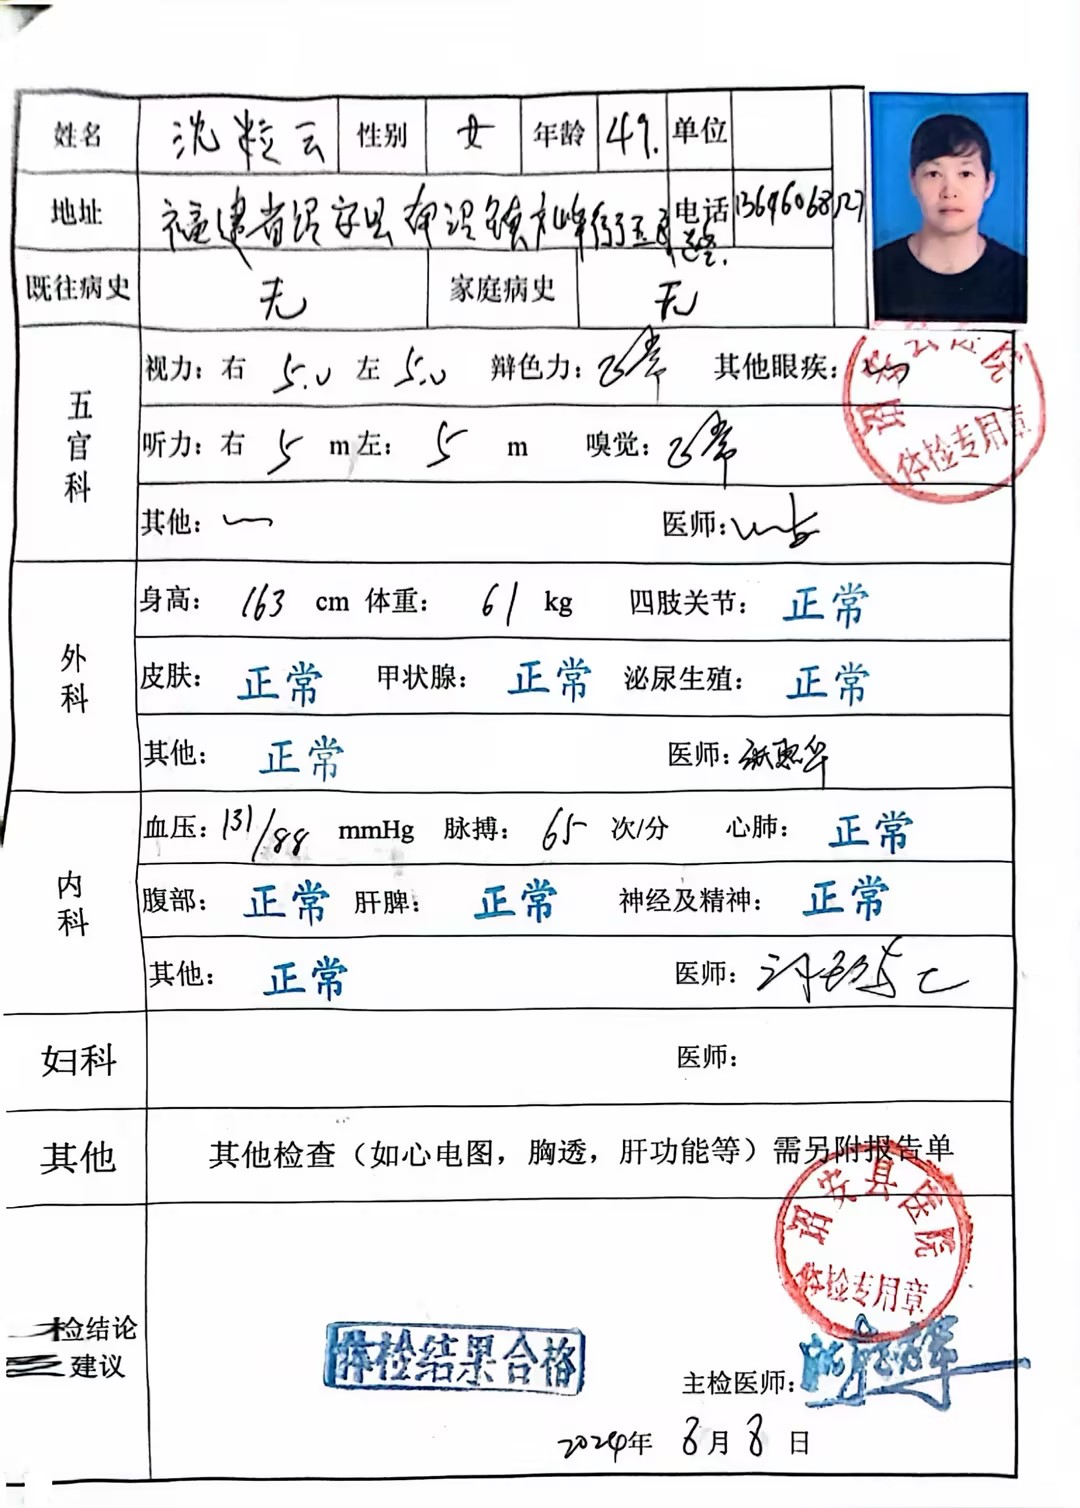 姓名 沈粒云 性别 女 年龄 49. 单位
地址 福建省诏安县 镇 电话 13696068127
既往病史 无 家庭病史 无
五官科
视力：右 5.0 左 5.0 辩色力：正常 其他眼疾：
听力：右 5 m左： 5 m 嗅觉：正常
体检专用章
其他：一 医师：
外科
身高： 163 cm 体重： 61 kg 四肢关节：正常
皮肤：正常 甲状腺：正常 泌尿生殖：正常
其他：正常 医师：
内科
血压：131/88 mmHg 脉搏：65 次/分 心肺：正常
腹部：正常 肝脾：正常 神经及精神：正常
其他：正常 医师：
妇科 医师：
其他 其他检查（如心电图，胸透，肝功能等）需另附报告单
诏安县医院
体检专用章
检结论
建议
体检结果合格
主检医师：
2024年 8月 8日